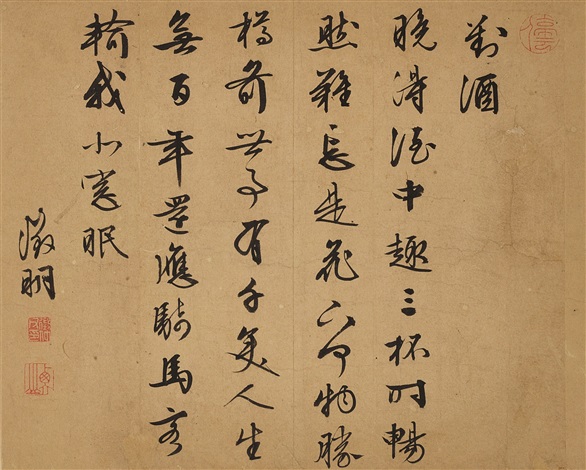 對酒
晚得酒中趣三杯時暢
然難忘是花下何物勝
樽前世事有千變人生
無百年還應騎馬客
輸我北窗眠
徵明